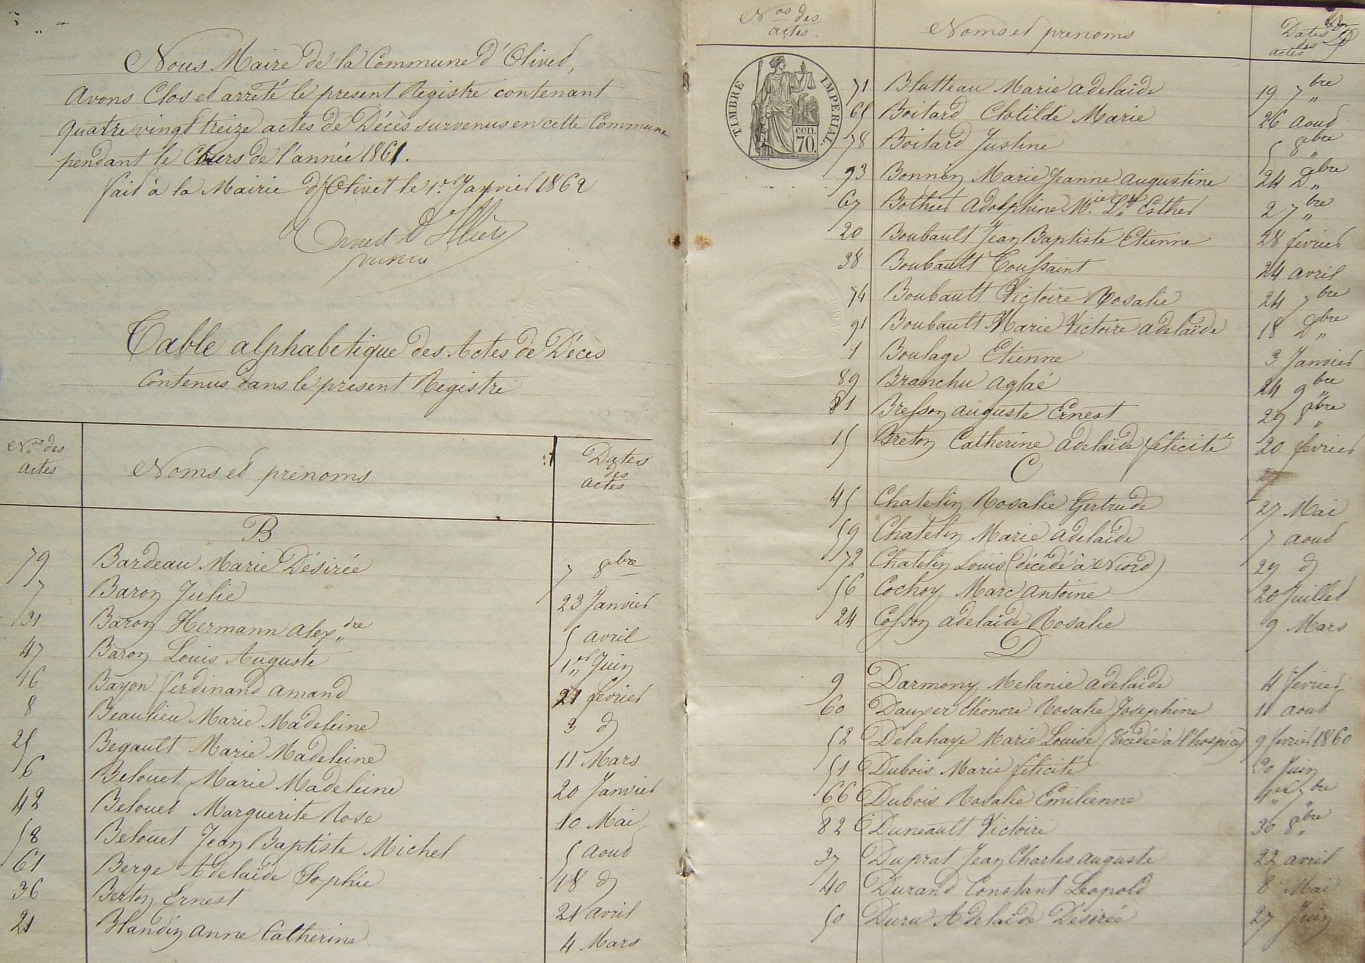 Nous Maire de la Commune d'Olivet,
avons Clos et arrêté le présent Registre contenant
quatre vingt treize actes de Décès survenus en cette Commune
pendant le Cours de l'année 1861.
fait à la Mairie d'Olivet le 1er Janvier 1862
Table alphabétique des Actes de Décès
Contenus dans le présent Registre
Nos des actes
Noms et prénoms
Dates des actes
B
79 Bardeau Marie Désirée 7 8bre
7 Baron Julie 23 Janvier
31 Baron Hermann Alexdre 5 avril
47 Baron Louis Auguste 1er Juin
16 Bayon ferdinand amand 21 février
8 Beaulieu Marie Madeleine 3 d
25 Begault Marie Madeleine 11 Mars
6 Belouet Marie Madeleine 20 Janvier
42 Belouet Marguerite Rose 10 Mai
58 Belouet Jean Baptiste Michel 5 aout
61 Berge Adelaïde Sophie 18 d
36 Berton Ernest 21 avril
21 Blandin anne Catherine 4 Mars
Nos des actes.
Noms et prénoms
Dates actes
TIMBRE IMPERIAL
70 cen.
71 Blutteau Marie adelaïde 19 7bre
65 Boitard Clotilde Marie 26 aout
78 Boitard Justine 5 8bre
93 Bonnin Marie Jeanne augustine 24 Dbre
67 Bothier adolphine Mie Esther 2 7bre
20 Boubault Jean Baptiste Etienne 28 février
38 Boubault Toussaint 24 avril
74 Boubault Victoire Rosalie 24 7bre
91 Boubault Marie Victoire adelaïde 18 Dbre
1 Boulage Etienne 3 Janvier
89 Branchu aglaé 24 9bre
81 Bresson auguste Ernest 29 8bre
15 Breton Catherine adelaïde félicité 20 février
C
45 Chatelin Rosalie Gertrude 27 Mai
59 Chatelin Marie adelaïde 7 aout
72 Chatelin Louis (décédé à Niort) 29 d
56 Cochoy Marc antoine 20 Juillet
24 Cosson adelaïde Rosalie 9 Mars
D
9 Darmony Melanie adelaïde 4 février
60 Dauxer Eléonore Rosalie Josephine 11 aout
52 Delahaye Marie Louise (décédée à l'hospice) 9 février 1860
51 Dubois Marie félicité 20 Juin
66 Dubois Rosalie Emilienne 1er 7bre
82 Duneault Victoire 30 8bre
37 Duprat Jean Charles auguste 22 avril
40 Durand Constant Léopold 8 Mai
50 Duru Adelaïde Désirée 27 Juin